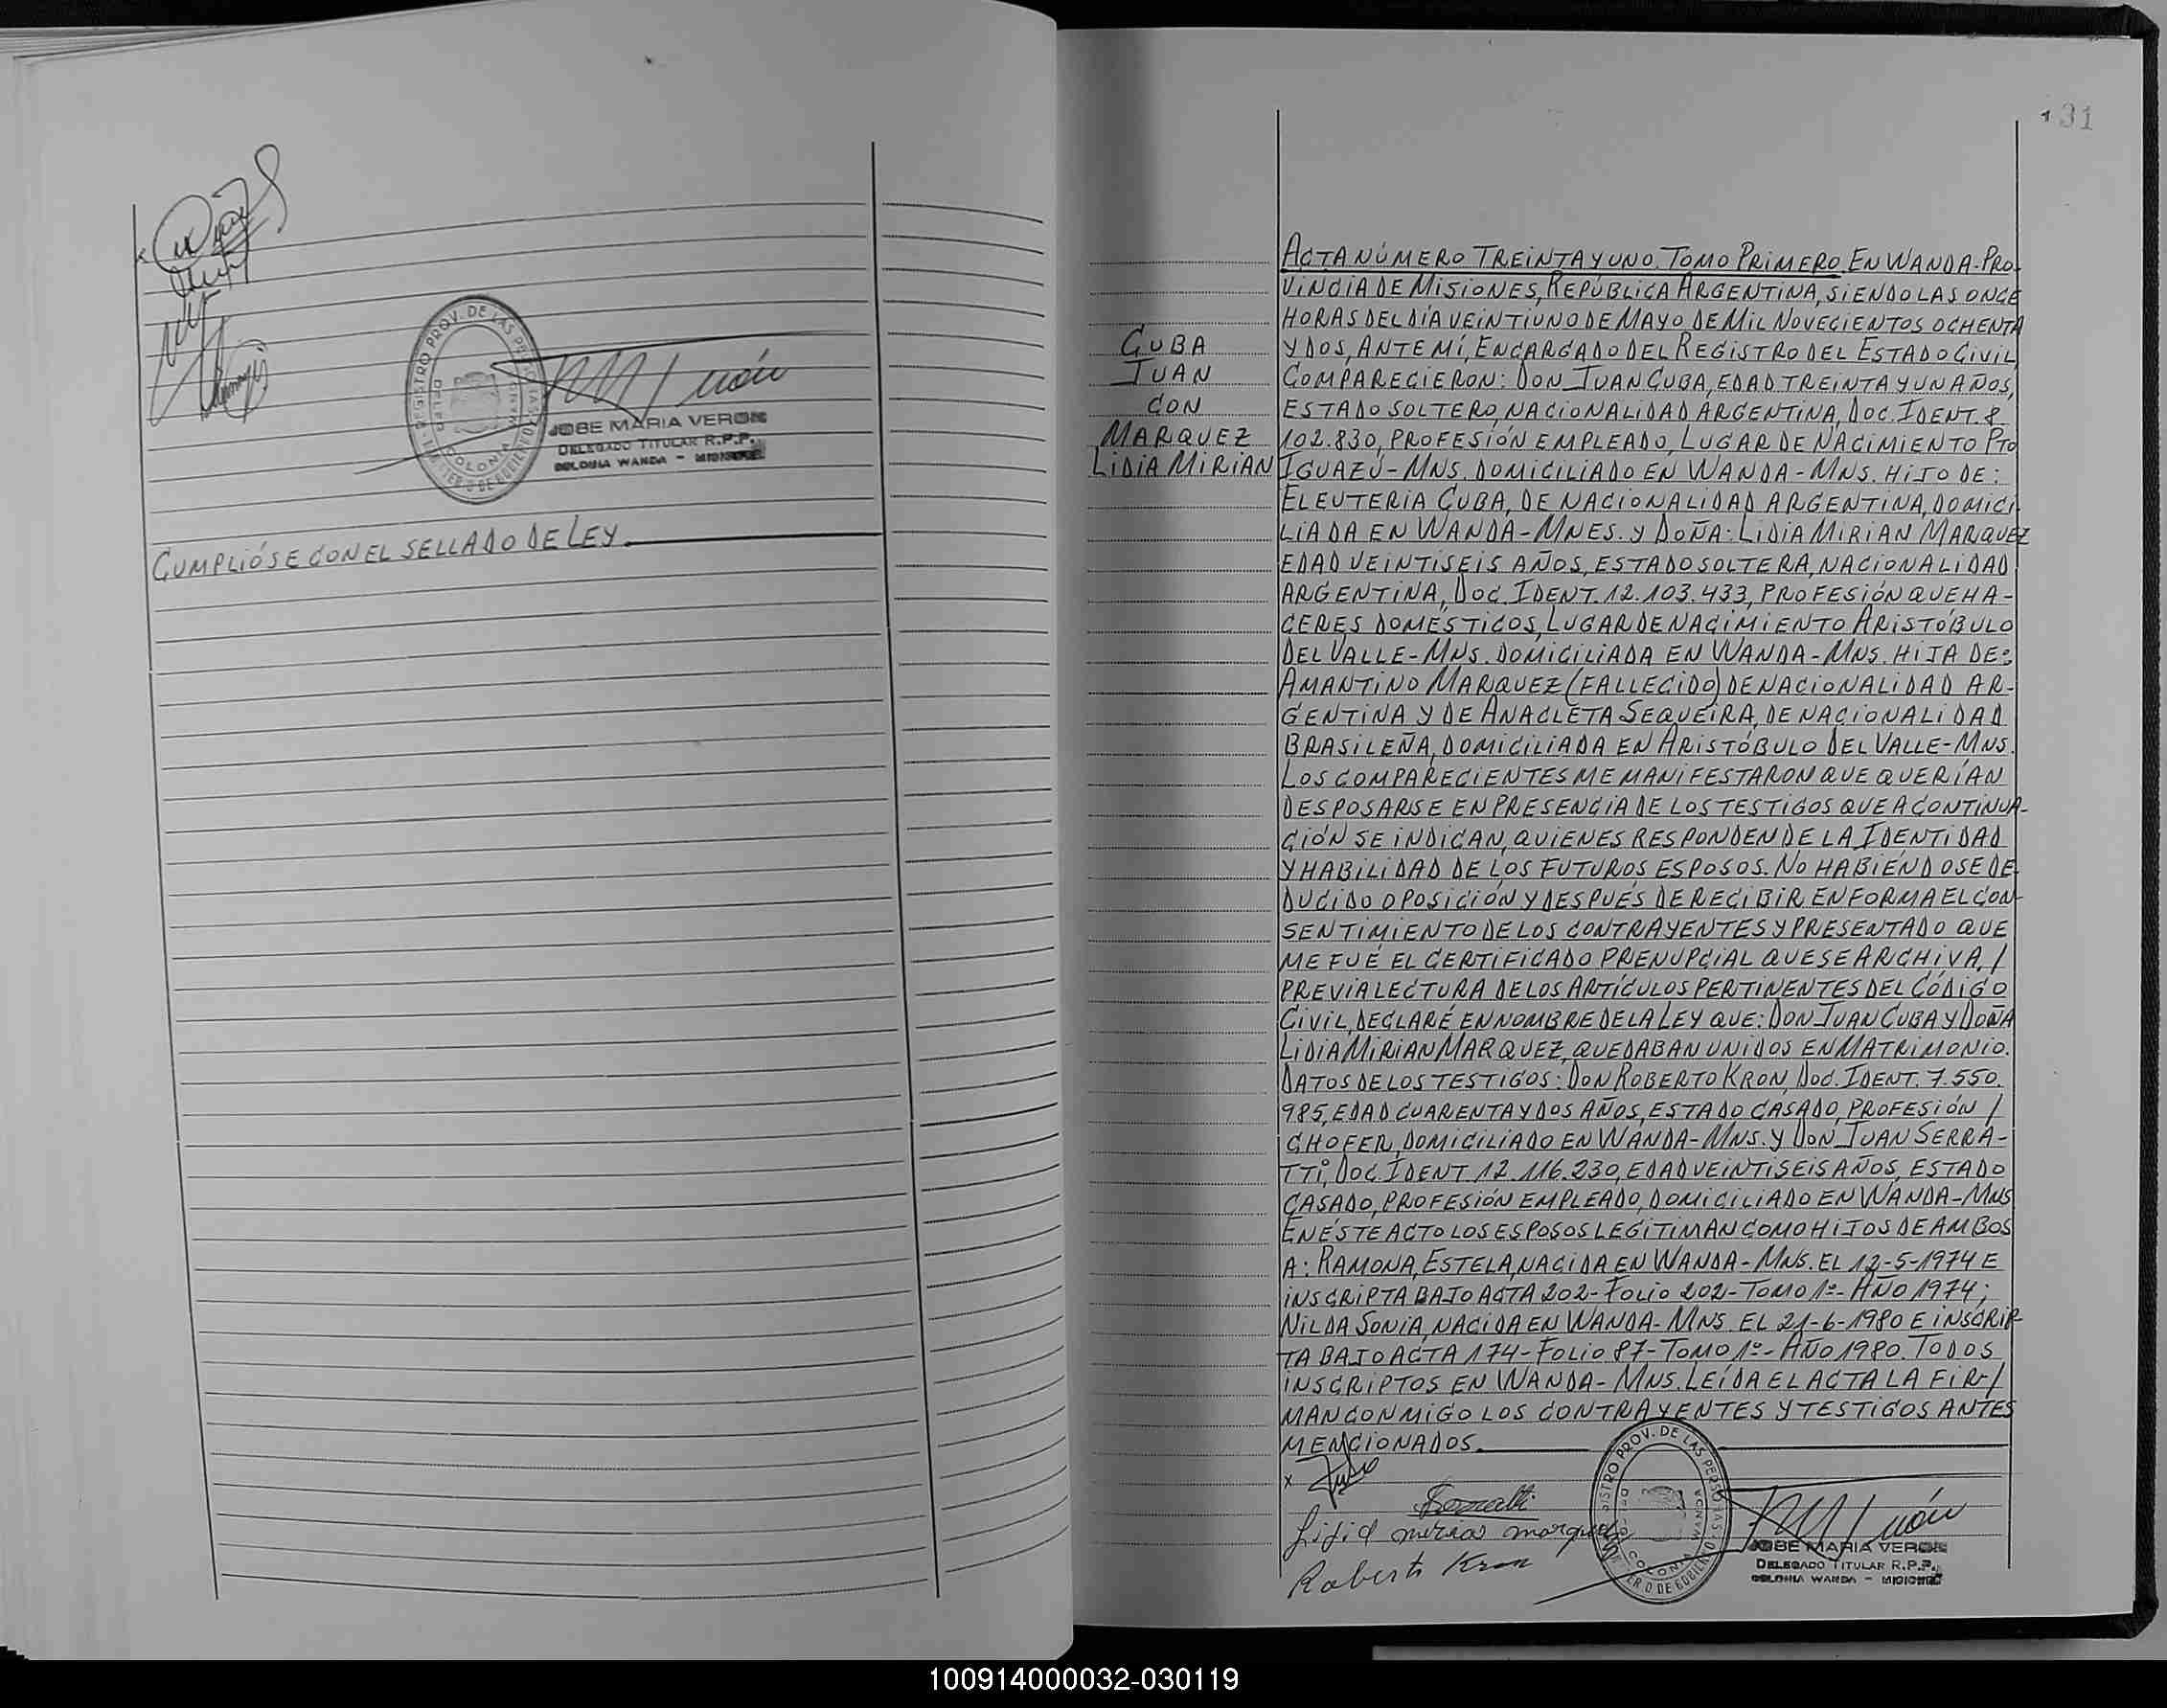 REGISTRO PROV. DE LAS
COLONIA WANDA
JOSE MARIA VERON
DELEGADO TITULAR R.P.P.
COLONIA WANDA - MISIONES
CUMPLIÓSE CON EL SELLADO DE LEY.
31
CUBA
JUAN
CON
MARQUEZ
LIDIA MIRIAN
ACTA NÚMERO TREINTA Y UNO. TOMO PRIMERO. EN WANDA-PRO-
VINCIA DE MISIONES, REPÚBLICA ARGENTINA, SIENDO LAS ONCE
HORAS DEL DÍA VEINTIUNO DE MAYO DE MIL NOVECIENTOS OCHENTA
Y DOS, ANTE MÍ, ENCARGADO DEL REGISTRO DEL ESTADO CIVIL,
COMPARECIERON: DON JUAN CUBA, EDAD TREINTA Y UN AÑOS,
ESTADO SOLTERO, NACIONALIDAD ARGENTINA, DOC. IDENT. 8.
102.830, PROFESIÓN EMPLEADO, LUGAR DE NACIMIENTO PTO
IGUAZÚ-MNS. DOMICILIADO EN WANDA-MNS. HIJO DE:
ELEUTERIA CUBA, DE NACIONALIDAD ARGENTINA, DOMICI-
LIADA EN WANDA-MNES. Y DOÑA: LIDIA MIRIAN MARQUEZ
EDAD VEINTISEIS AÑOS, ESTADO SOLTERA, NACIONALIDAD
ARGENTINA, DOC. IDENT. 12.103.433, PROFESIÓN QUEHA-
CERES DOMESTICOS, LUGAR DE NACIMIENTO ARISTÓBULO
DEL VALLE-MNS. DOMICILIADA EN WANDA-MNS. HIJA DE:
AMANTINO MARQUEZ (FALLECIDO) DE NACIONALIDAD AR-
GENTINA Y DE ANACLETA SEQUEIRA, DE NACIONALIDAD
BRASILEÑA, DOMICILIADA EN ARISTÓBULO DEL VALLE-MNS.
LOS COMPARECIENTES ME MANIFESTARON QUE QUERÍAN
DESPOSARSE EN PRESENCIA DE LOS TESTIGOS QUE A CONTINUA-
CIÓN SE INDICAN, QUIENES RESPONDEN DE LA IDENTIDAD
Y HABILIDAD DE LOS FUTUROS ESPOSOS. NO HABIÉNDOSE DE
DUCIDO OPOSICIÓN Y DESPUÉS DE RECIBIR EN FORMA EL CON-
SENTIMIENTO DE LOS CONTRAYENTES Y PRESENTADO QUE
ME FUÉ EL CERTIFICADO PRENUPCIAL QUE SE ARCHIVA, /
PREVIA LECTURA DE LOS ARTÍCULOS PERTINENTES DEL CÓDIGO
CIVIL, DECLARÉ EN NOMBRE DE LA LEY QUE: DON JUAN CUBA Y DOÑA
LIDIA MIRIAN MARQUEZ, QUEDABAN UNIDOS EN MATRIMONIO.
DATOS DE LOS TESTIGOS: DON ROBERTO KRON, DOC. IDENT. 7.550.
985, EDAD CUARENTA Y DOS AÑOS, ESTADO CASADO, PROFESIÓN /
CHOFER, DOMICILIADO EN WANDA-MNS. Y DON JUAN SERRA-
TTI, DOC. IDENT. 12.116.230, EDAD VEINTISEIS AÑOS, ESTADO
CASADO, PROFESIÓN EMPLEADO, DOMICILIADO EN WANDA-MNS
EN ÉSTE ACTO LOS ESPOSOS LEGITIMAN COMO HIJOS DE AMBOS
A: RAMONA, ESTELA, NACIDA EN WANDA-MNS. EL 12-5-1974 E
INSCRIPTA BAJO ACTA 202-FOLIO 202-TOMO 1º-AÑO 1974;
NILDA SONIA, NACIDA EN WANDA-MNS. EL 21-6-1980 E INSCRIP-
TA BAJO ACTA 174-FOLIO 87-TOMO 1º-AÑO 1980. TODOS
INSCRIPTOS EN WANDA-MNS. LEÍDA EL ACTA LA FIR-/
MAN CONMIGO LOS CONTRAYENTES Y TESTIGOS ANTES
MENCIONADOS.
x
Lidia Mirian Marquez
Roberto Kron
PROV. DE LAS
COLONIA WANDA
JOSE MARIA VERON
DELEGADO TITULAR R.P.P.
COLONIA WANDA - MISIONES
100914000032-030119